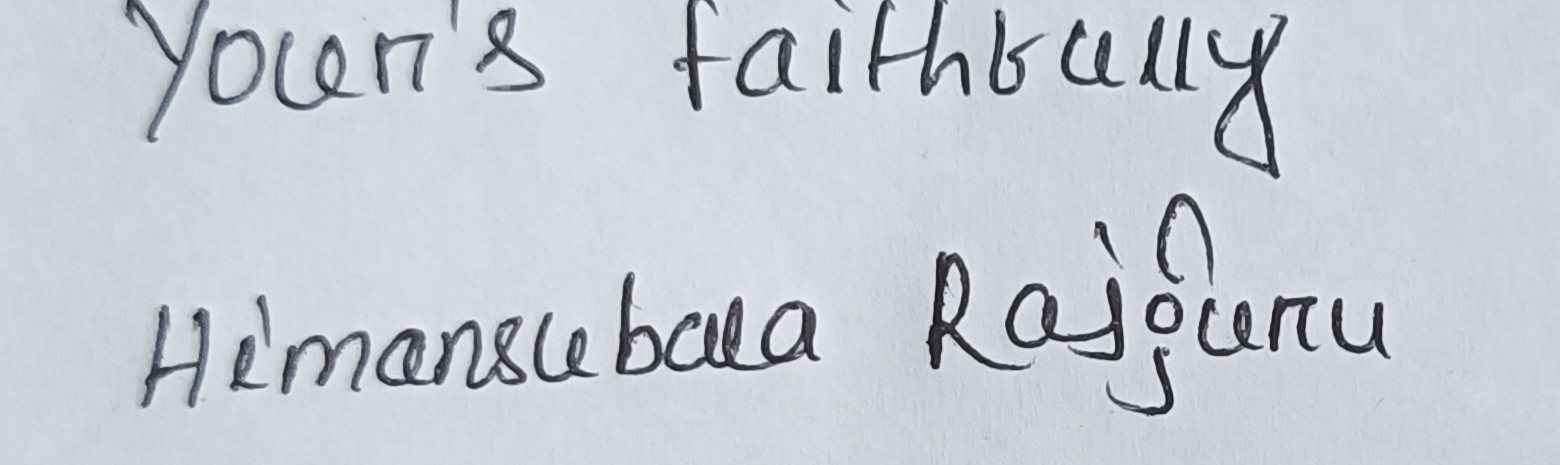 Your's faithfully
Himansubala Rajguru